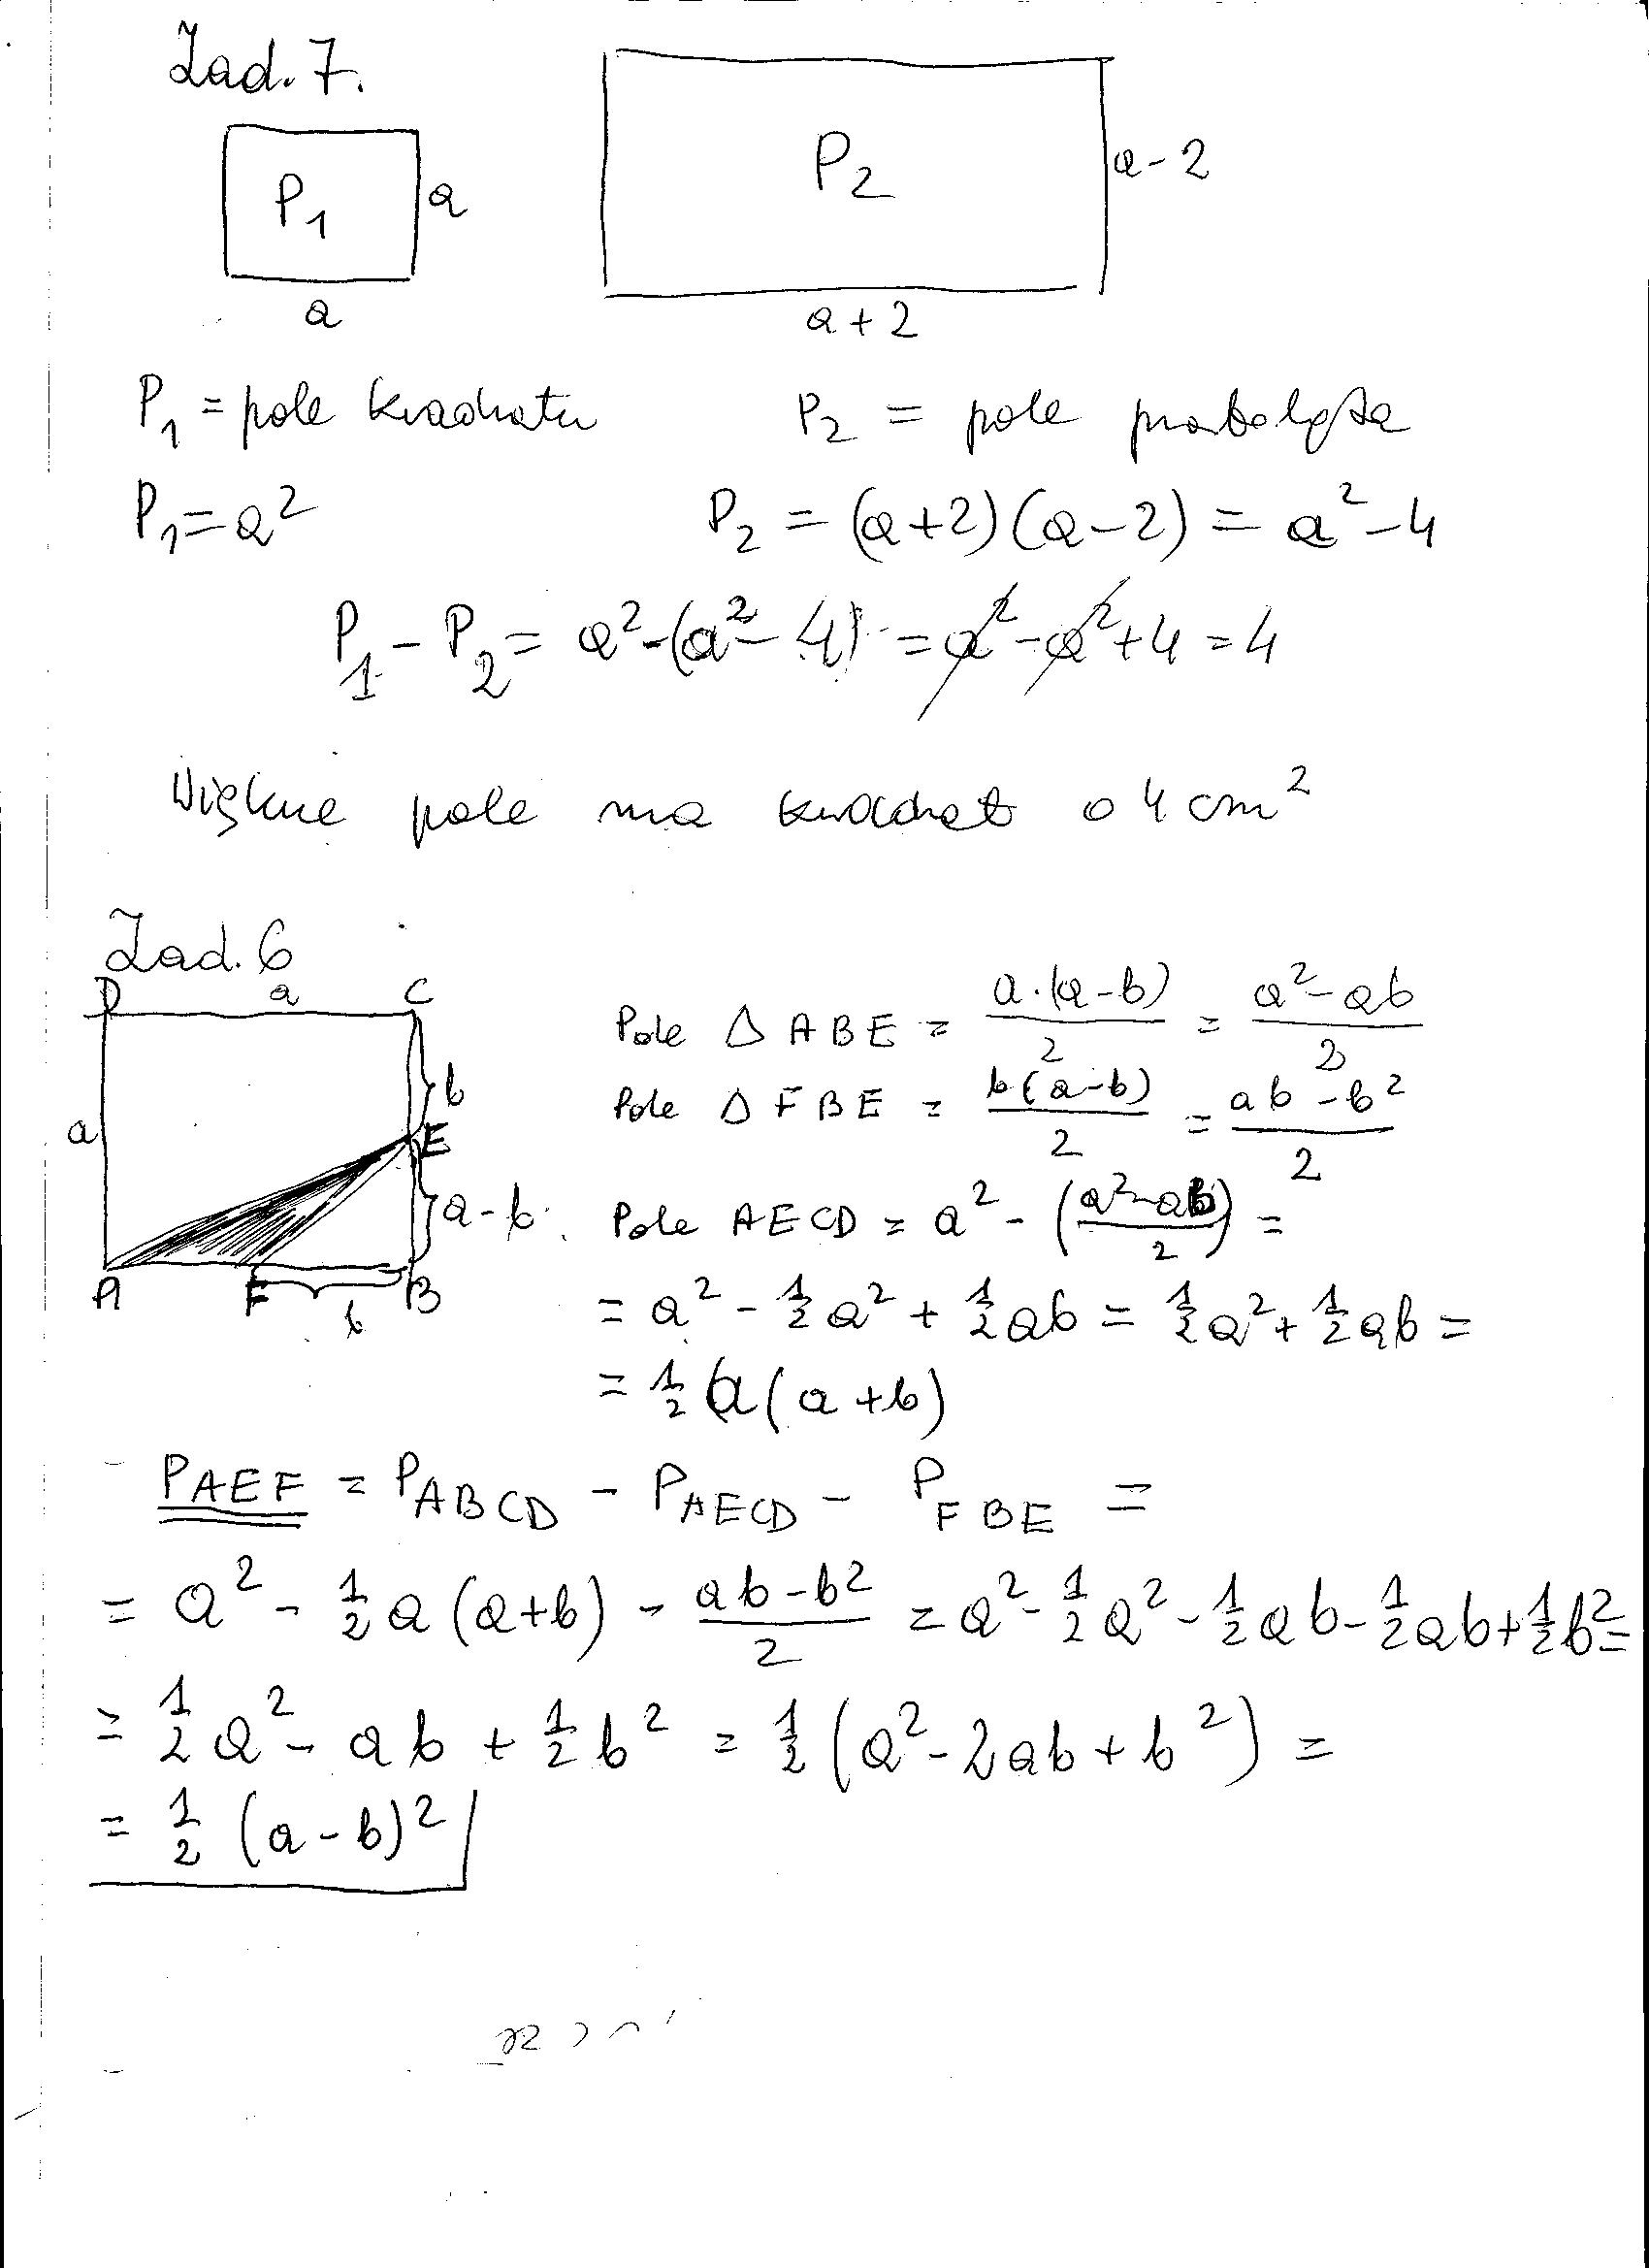 Zad. 7.
P₁ a a
P₂ a-2 a+2
P₁ = pole kwadratu P₂ = pole prostokąta
P₁ = a² P₂ = (a+2)(a-2) = a²-4
P₁ - P₂ = a²-(a²-4) = a²-a²+4 = 4
Większe pole ma kwadrat o 4 cm²
Zad. 6
D a C
a b E a-b
A F B
b
Pole △ ABE = a·(a-b)/2 = a²-ab/2
Pole △ FBE = b(a-b)/2 = ab-b²/2
Pole AECD = a² - (a²-ab/2) =
= a² - 1/2 a² + 1/2 ab = 1/2 a² + 1/2 ab =
= 1/2 a(a+b)
P AEF = P ABCD - P AECD - P FBE =
= a² - 1/2 a(a+b) - ab-b²/2 = a² - 1/2 a² - 1/2 ab - 1/2 ab + 1/2 b² =
= 1/2 a² - ab + 1/2 b² = 1/2 (a²-2ab+b²) =
= 1/2 (a-b)²